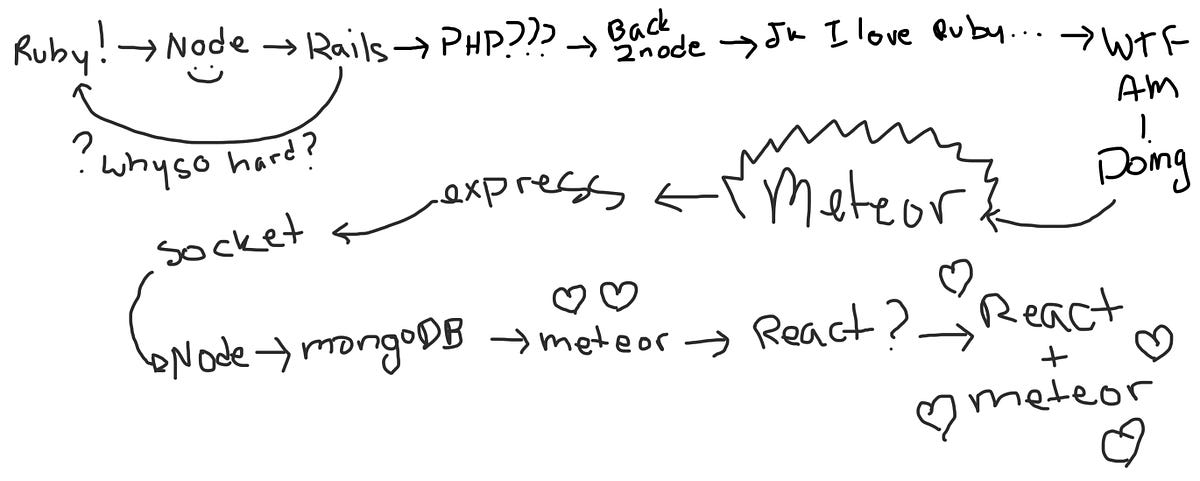 Ruby! → Node → Rails → PHP??? → Back 2node → Jk I love Ruby... → WTF
AM
I
Doing
? why so hard?
Meteor
express
socket
Node → mongoDB → meteor → React? → React
+
meteor